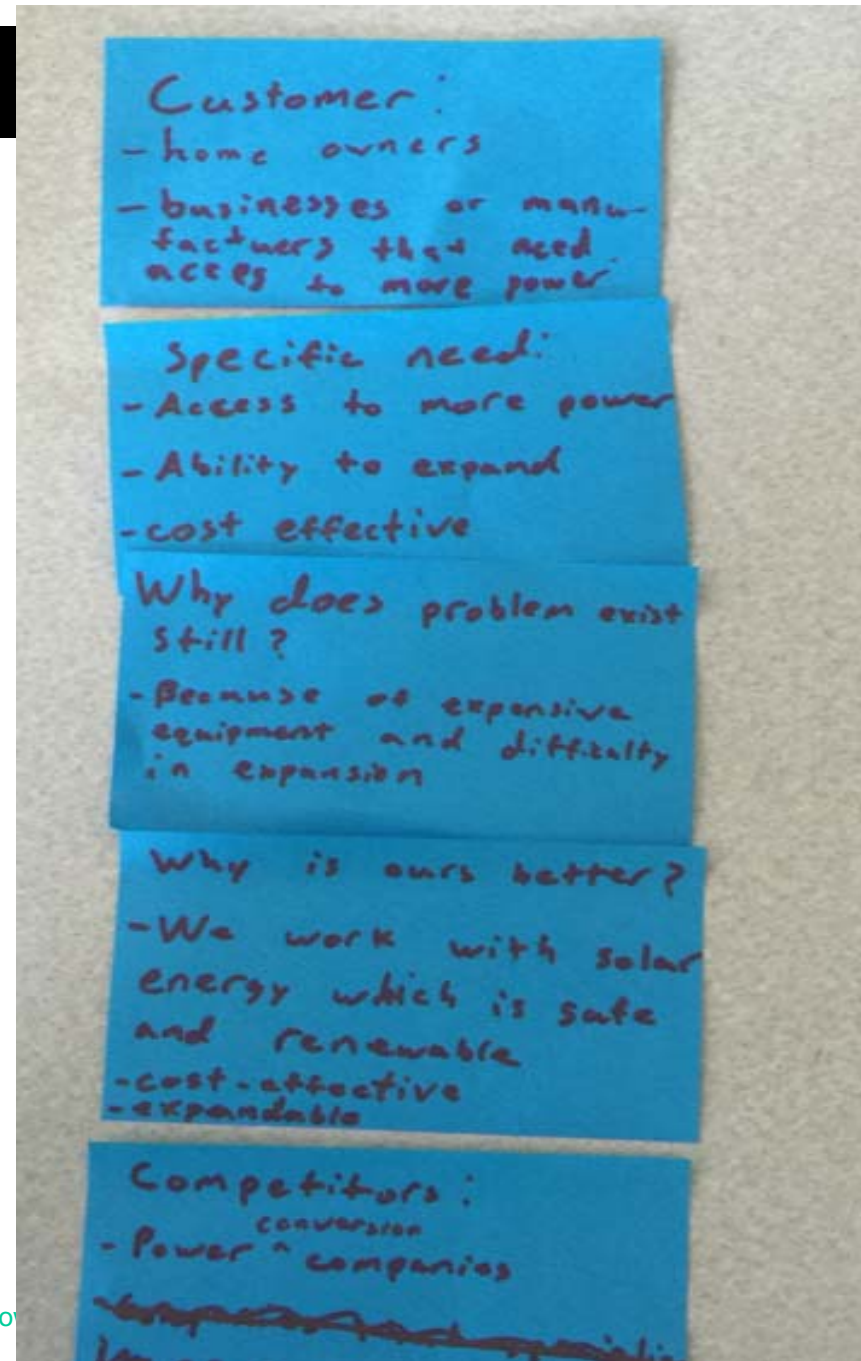 Customer:
- home owners
- businesses or manu-
factuers that need
acces to more power
Specific need:
- Access to more power
- Ability to expand
- cost effective
Why does problem exist
still?
- Because of expensive
equipment and difficulty
in expansion
Why is ours better?
- We work with solar
energy which is safe
and renewable
- cost-effective
- expandable
Competitors:
conversion
- Power ^ companies